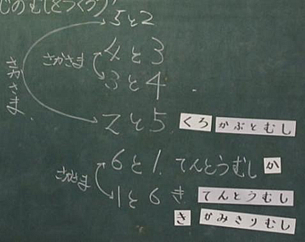 じのむしとつくろう!
5と2
4と3
さかさま
3と4
さかさま
2と5 くろ かぶとむし
6と1 てんとうむし か
さかさま
1と6 き てんとうむし
き かみきりむし